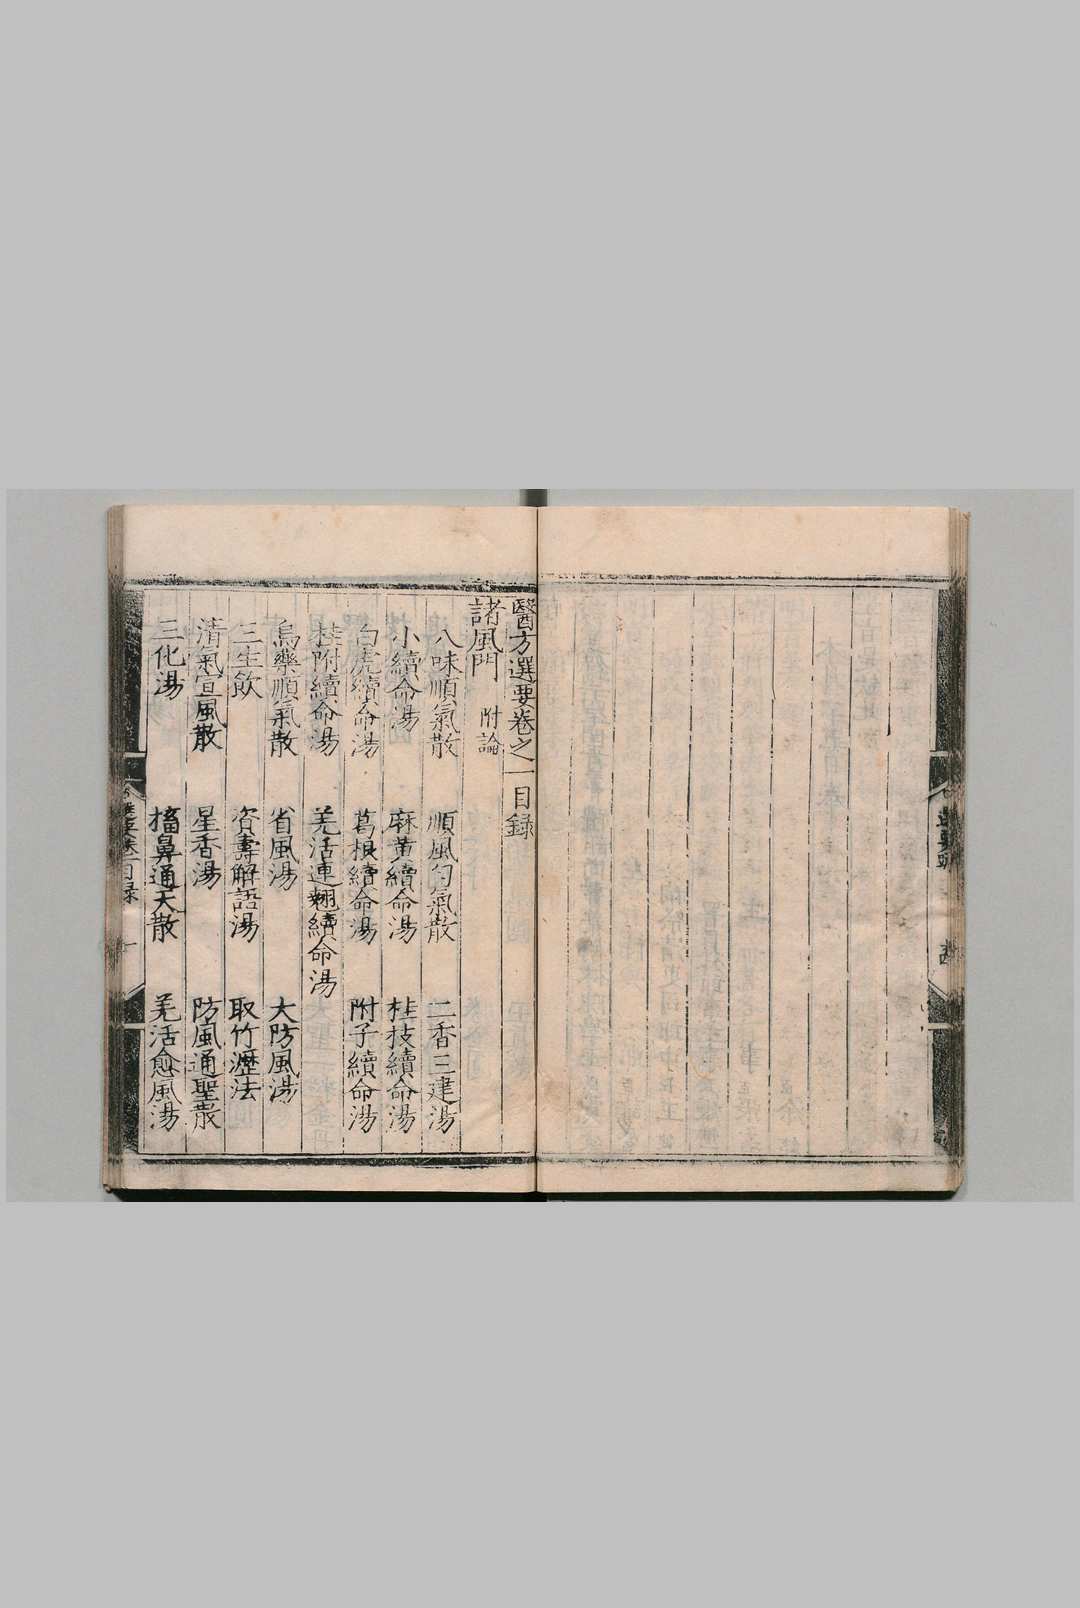 醫方選要卷之一目録
諸風門 附論
八味順氣散 順風勻氣散 二香三建湯
小續命湯 麻黄續命湯 桂枝續命湯
白虎續命湯 葛根續命湯 附子續命湯
桂附續命湯 羌活連翹續命湯
烏藥順氣散 省風湯 大防風湯
三生飲 資壽解語湯 取竹瀝法
清氣宣風散 星香湯 防風通聖散
三化湯 搐鼻通天散 羌活愈風湯